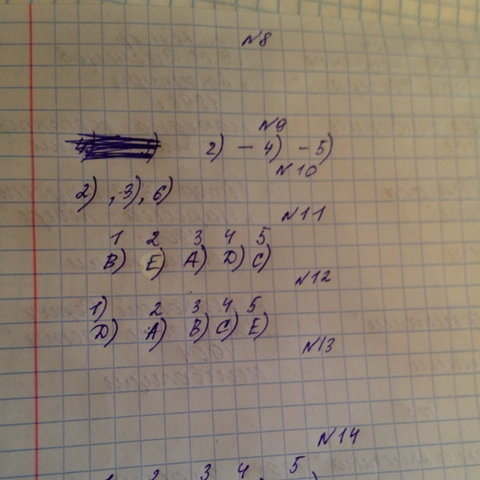 №8
№9
2) - 4) - 5)
№10
2), 3), 6)
№11
1 2 3 4 5
B) E) A) D) C)
№12
1) 2 3 4 5
D) A) B) C) E)
№13
№14
2 3 4 5